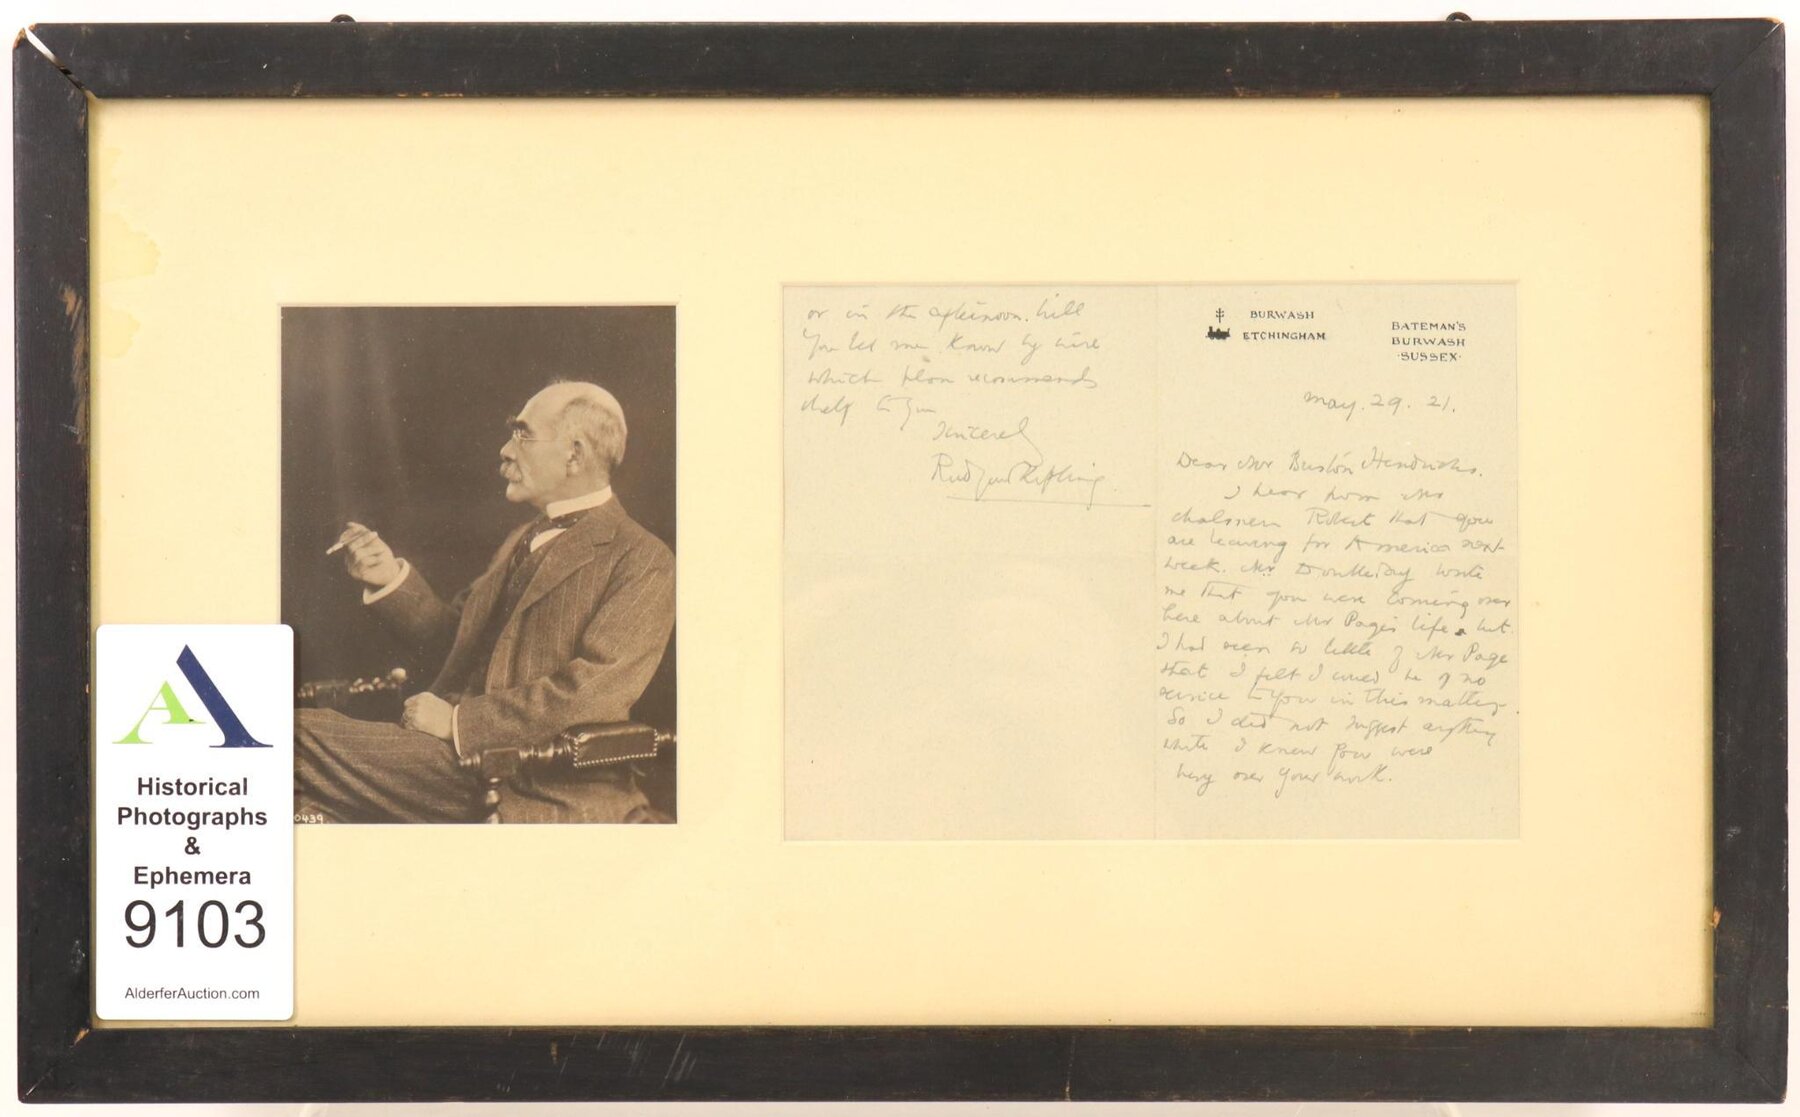 or in the afternoon. Will
You let me know by wire
which plan recommends
itself to you
Sincerely
Rudyard Kipling.
BURWASH
ETCHINGHAM
BATEMAN'S
BURWASH
·SUSSEX·
May. 29. 21.
Dear Mr Burton Hendricks.
I hear from Mrs
Chalmers Robert that you
are leaving for America next
week. Mr Doubleday wrote
me that you were coming over
here about Mr Page's life, but
I had seen so little of Mr Page
that I felt I could be of no
service to you in this matter.
So I did not suggest anything
while I knew you were
busy over your work.
0439.
Historical
Photographs
&
Ephemera
9103
AlderferAuction.com